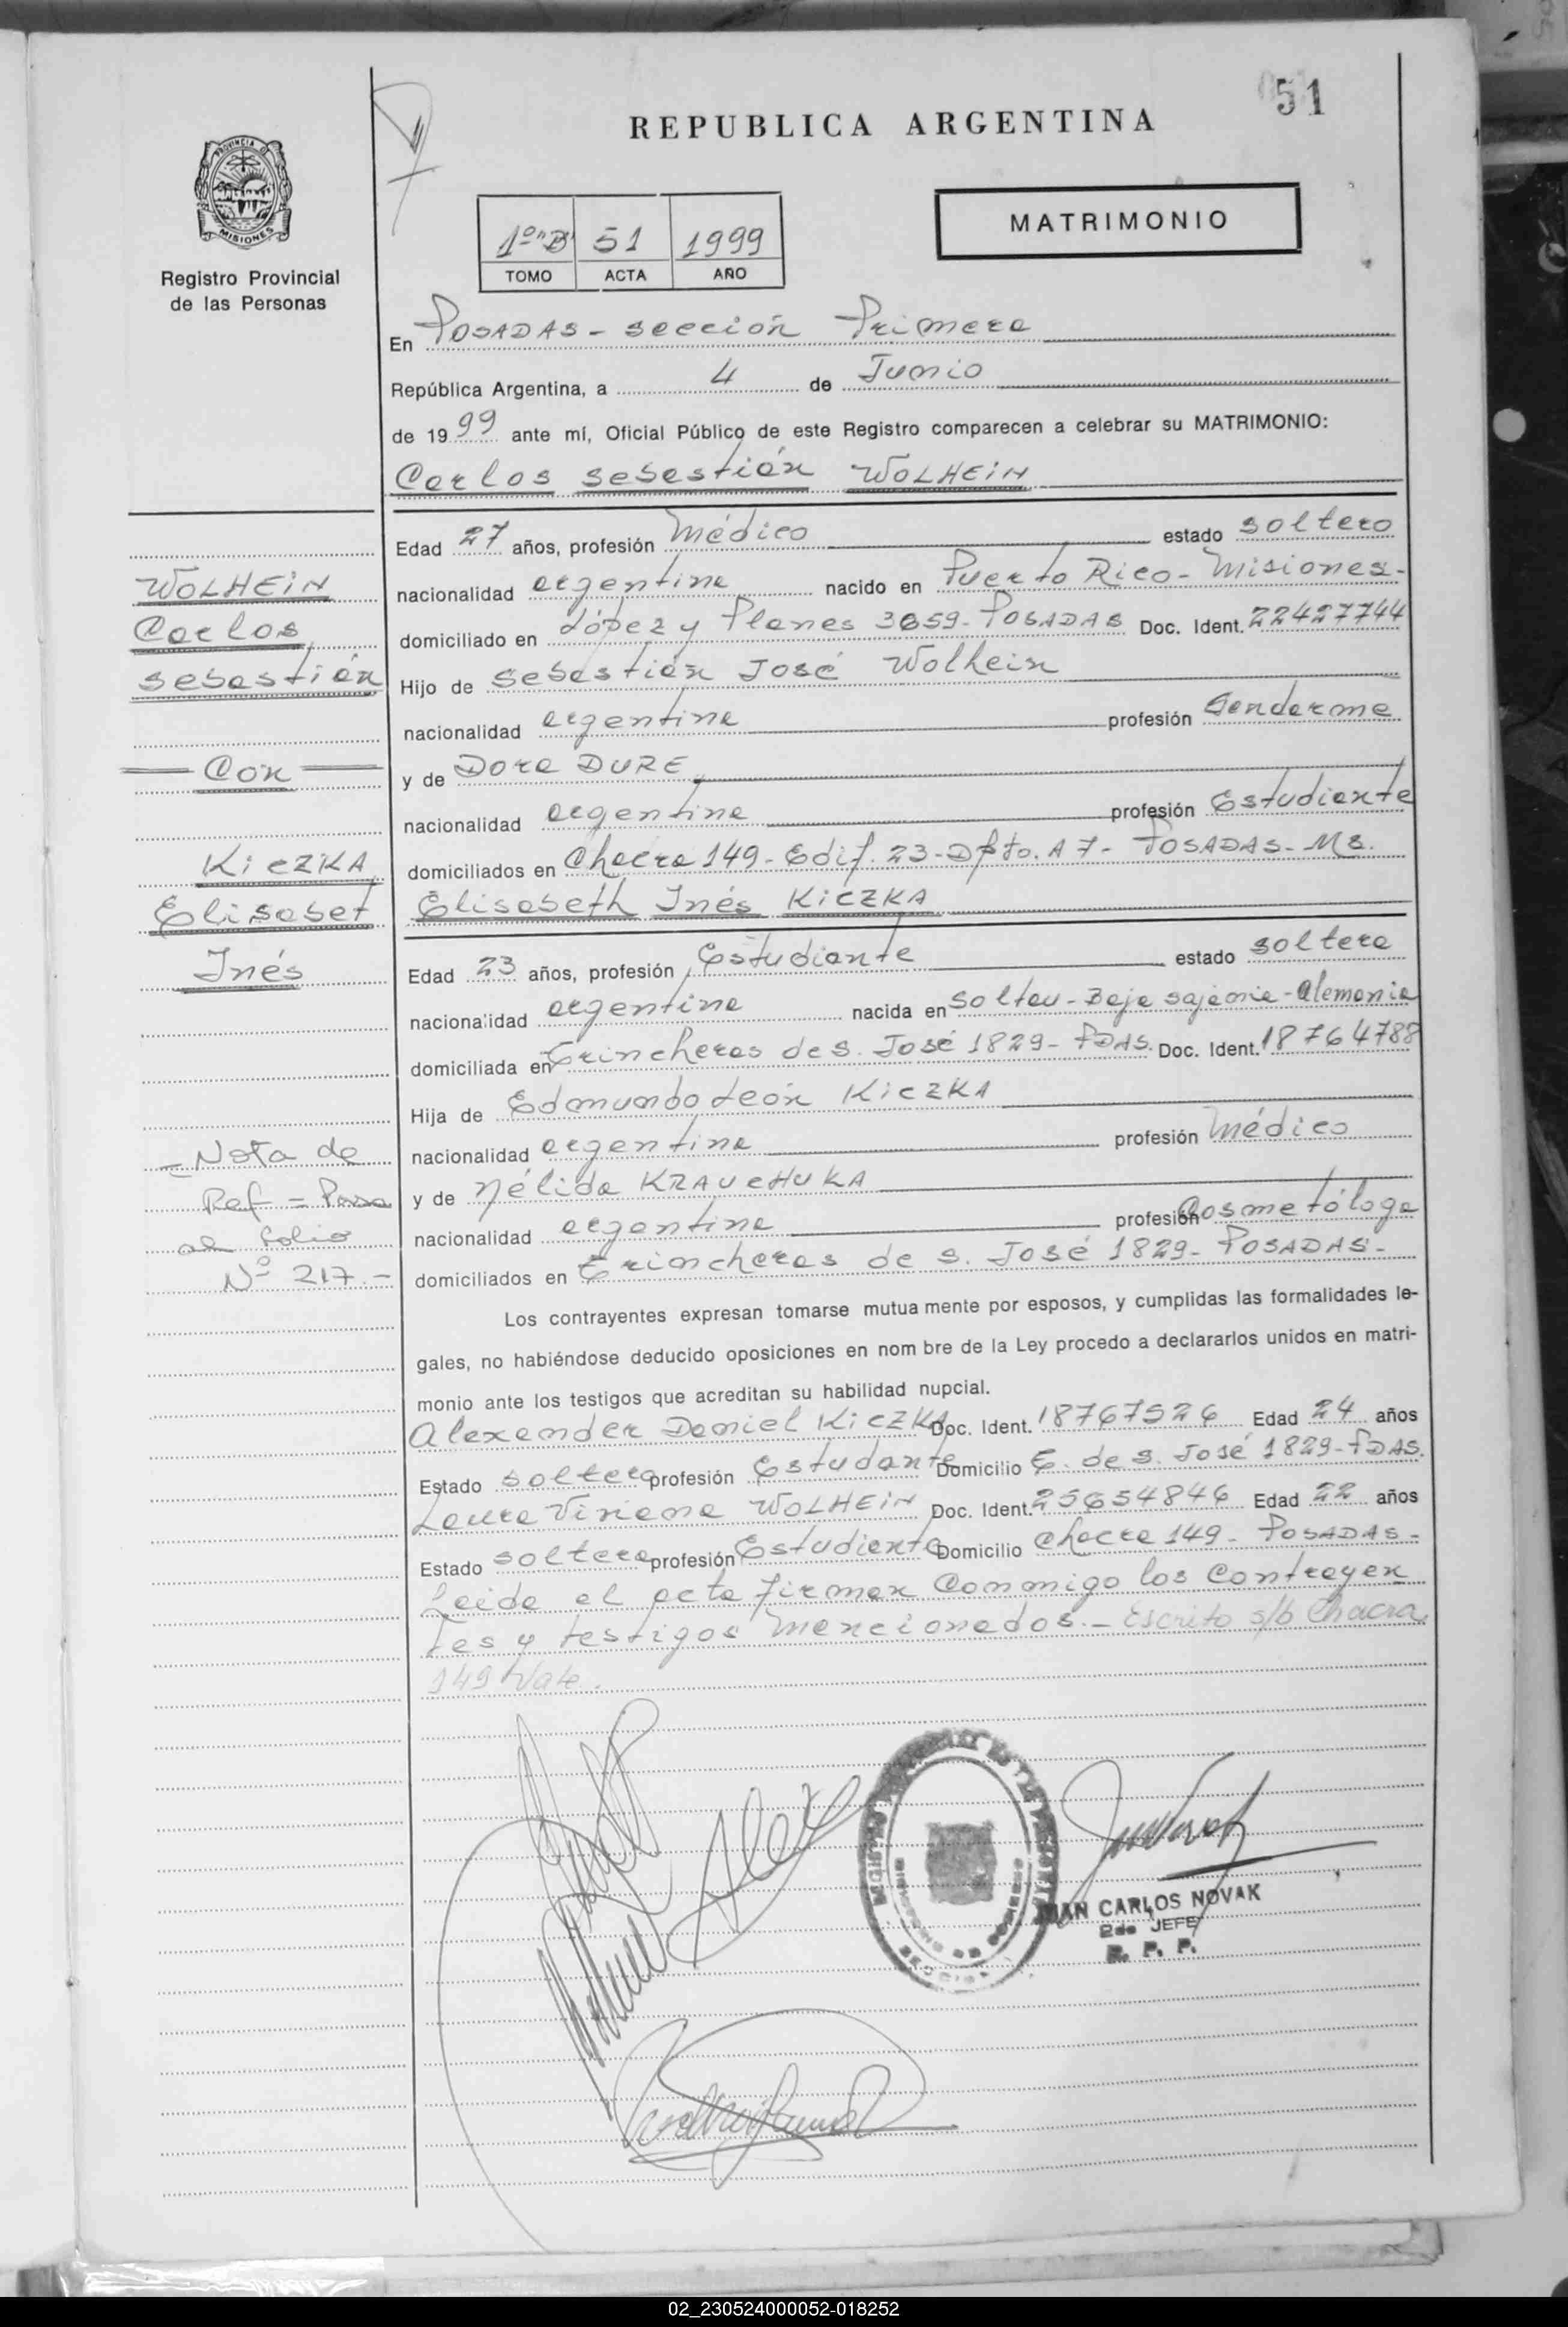 51
REPUBLICA ARGENTINA
PROVINCIA DE
MISIONES
Registro Provincial
de las Personas
1º "B" 51 1999
TOMO ACTA AÑO
MATRIMONIO
En POSADAS - sección Primera
República Argentina, a 4 de Junio
de 1999 ante mí, Oficial Público de este Registro comparecen a celebrar su MATRIMONIO:
Carlos Sebastián WOLHEIN
Edad 27 años, profesión Médico estado soltero
nacionalidad argentina nacido en Puerto Rico - Misiones -
domiciliado en López y Planes 3659 - POSADAS Doc. Ident. 22427744
Hijo de Sebastián José Wolhein
nacionalidad argentina profesión Gendarme
y de Dora DURE
nacionalidad argentina profesión Estudiante
domiciliados en Chacra 149 - Edif. 23 - Dpto. A 7 - POSADAS - Ms.
Elisabeth Inés KICZKA
Edad 23 años, profesión Estudiante estado soltera
nacionalidad argentina nacida en Soltau - Baja sajonia - Alemania
domiciliada en Trincheras de S. José 1829 - PDAS. Doc. Ident. 18764788
Hija de Edmundo León KICZKA
nacionalidad argentina profesión Médico
y de Nélida KRAUCHUKA
nacionalidad argentina profesión Cosmetóloga
domiciliados en Trincheras de S. José 1829 - POSADAS -
Los contrayentes expresan tomarse mutua mente por esposos, y cumplidas las formalidades le-
gales, no habiéndose deducido oposiciones en nom bre de la Ley procedo a declararlos unidos en matri-
monio ante los testigos que acreditan su habilidad nupcial.
Alexander Daniel KICZKA Doc. Ident. 18767526 Edad 24 años
Estado soltero profesión Estudante Domicilio T. de S. José 1829 - PDAS.
Laura Viviana WOLHEIN Doc. Ident. 25654846 Edad 22 años
Estado soltera profesión Estudiante Domicilio Chacra 149 - POSADAS -
Leida el acta firman Conmigo los Contrayen
tes y testigos mencionados. - Escrito s/b Chacra
149 Vale.
WOLHEIN
Carlos
Sebastián
Con
KICZKA
Elisabet
Inés
- Nota de
Ref = Pasa
al folio
Nº 217.-
JUAN CARLOS NOVAK
2do JEFE
R. P. P.
02_230524000052-018252